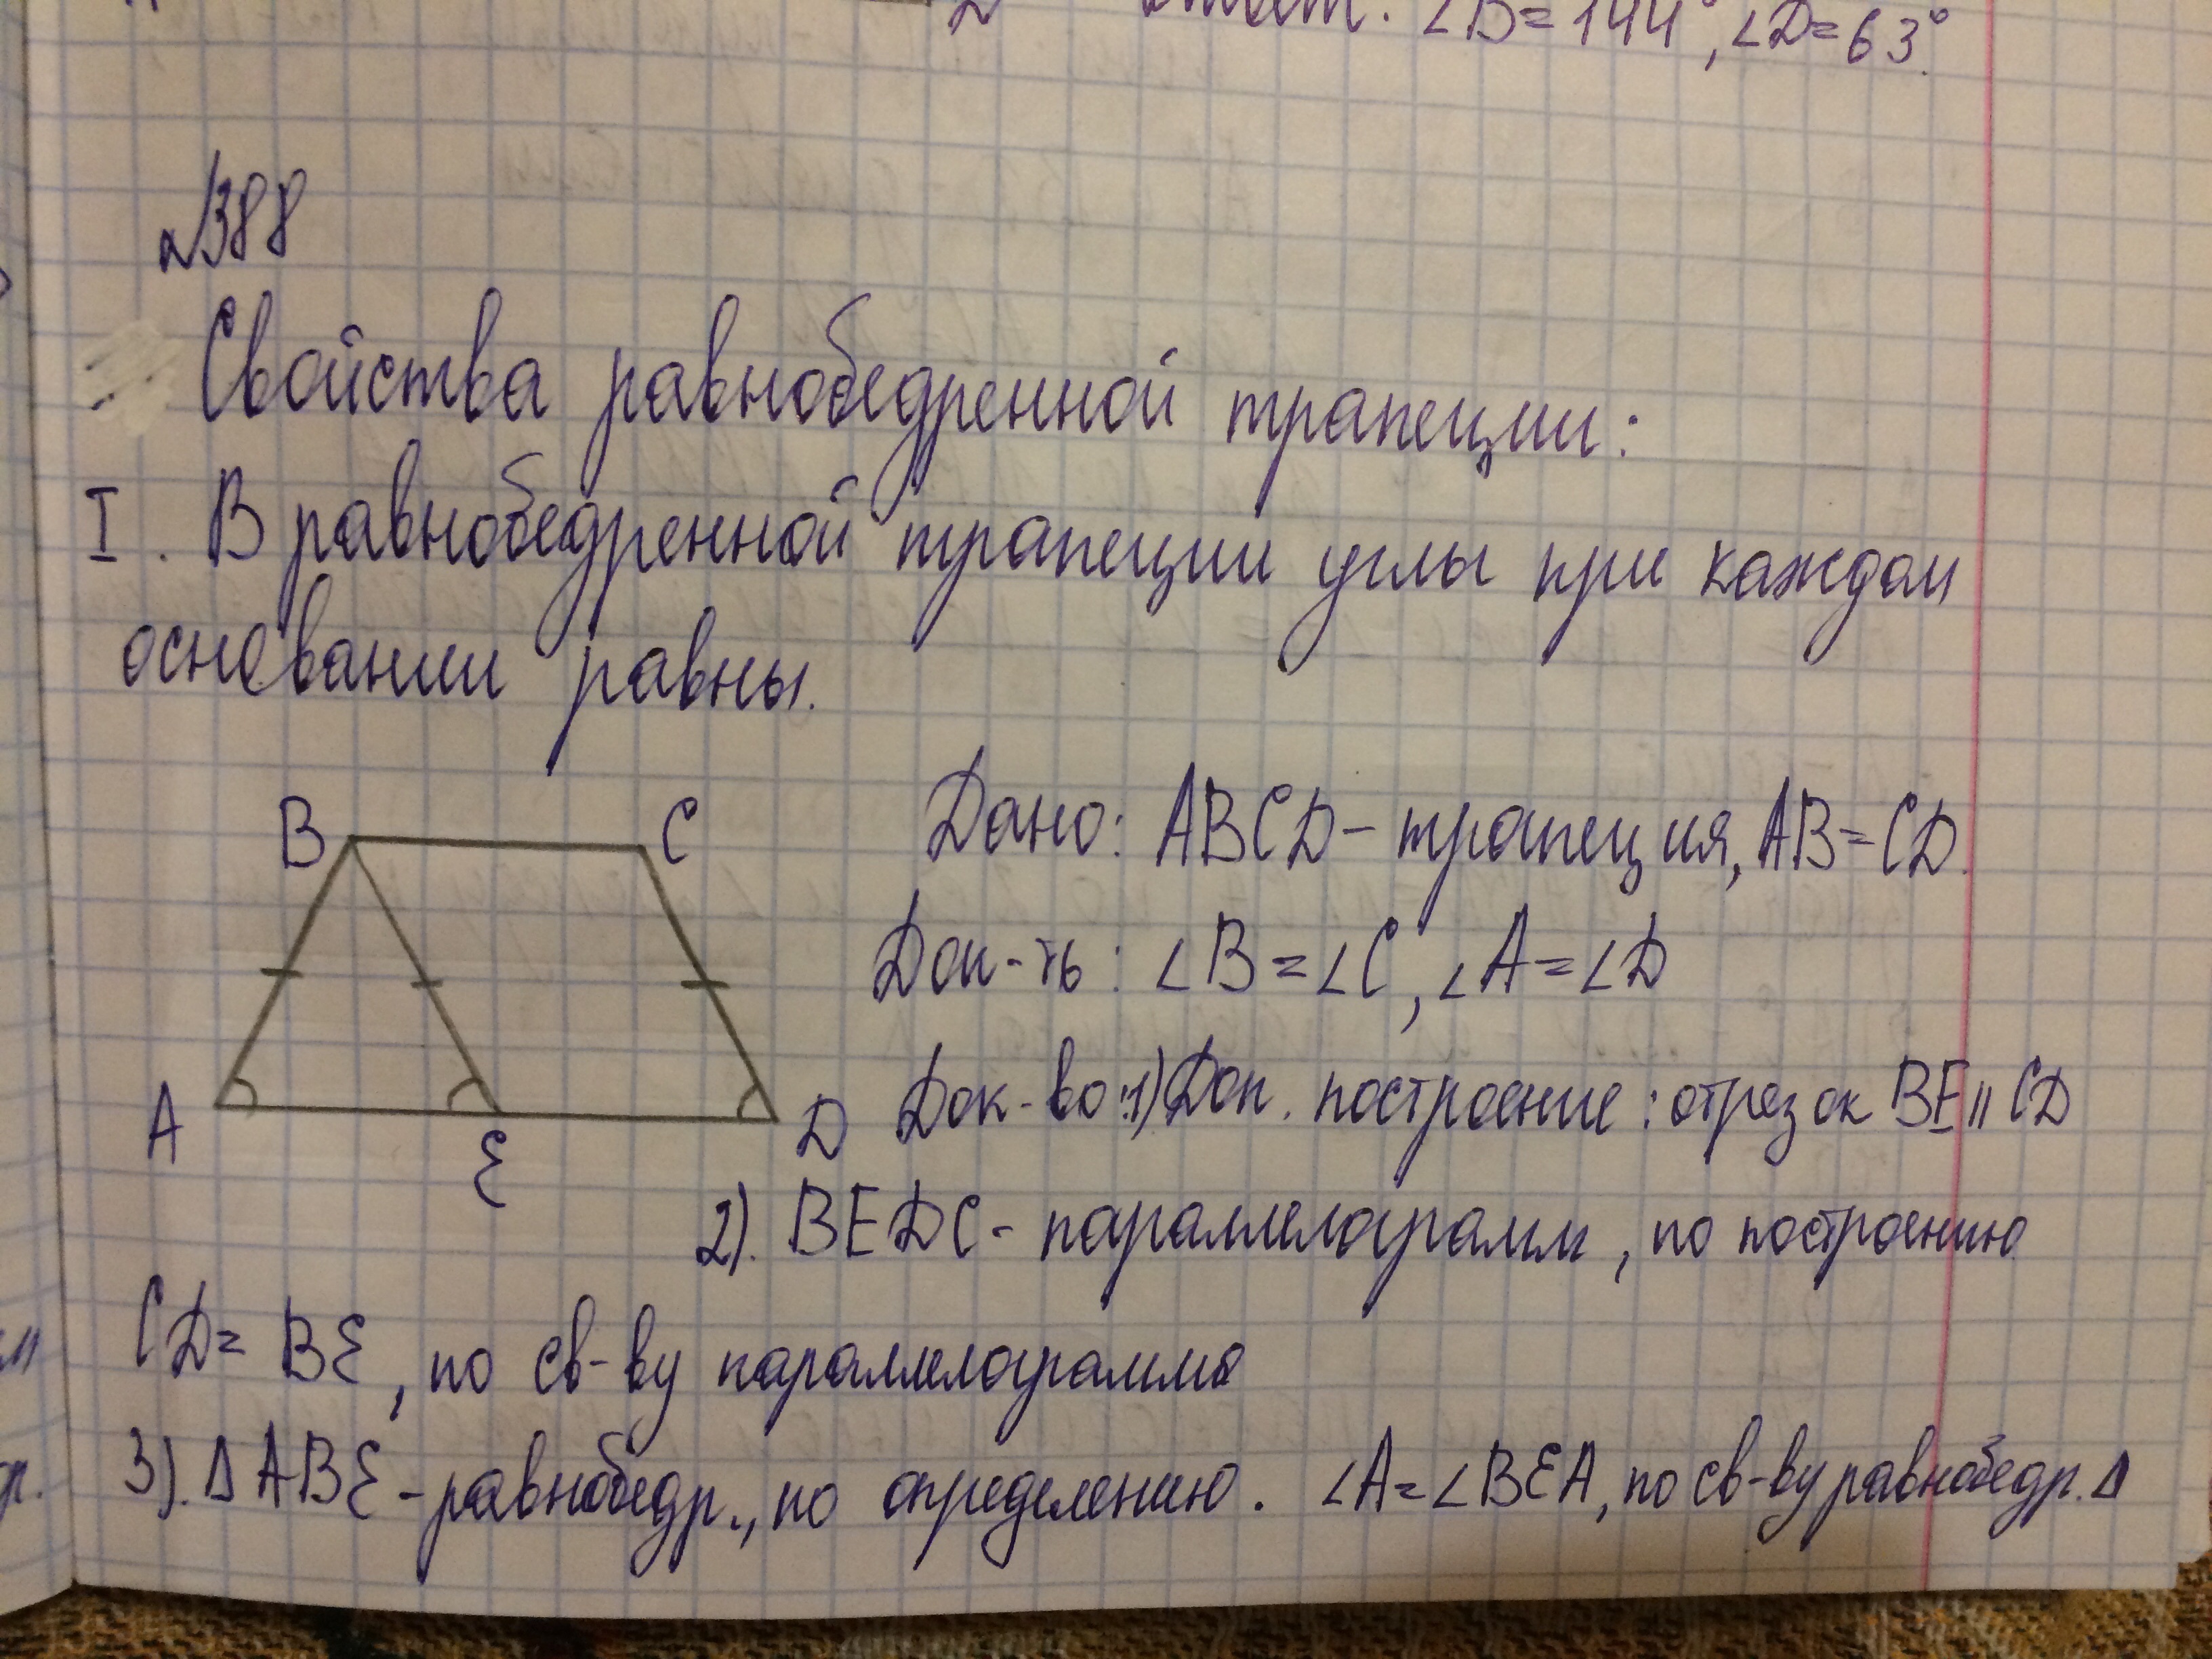 Ответ: ∠B=144°, ∠D=63°.
№388
Свойства равнобедренной трапеции:
I. В равнобедренной трапеции углы при каждом
основании равны.
B C
A E D
Дано: ABCD – трапеция, AB=CD.
Док-ть: ∠B=∠C, ∠A=∠D
Док-во: 1) Доп. построение: отрезок BE || CD
2). BEDC – параллелограмм, по построению
CD = BE, по св-ву параллелограмма
3). Δ ABE – равнобедр., по определению. ∠A=∠BEA, по св-ву равнобедр. Δ